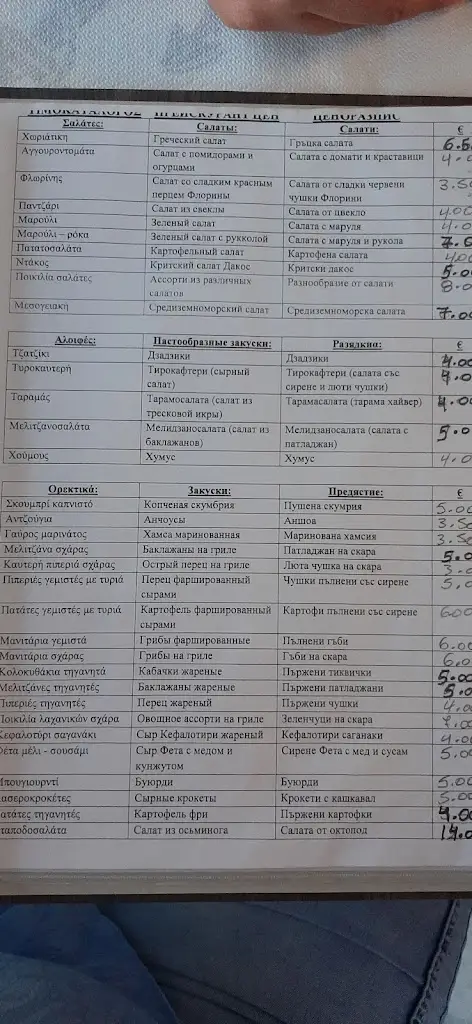 ΤΙΜΟΚΑΤΑΛΟΓΟΣ ПРЕЙСКУРАНТ ЦЕН ЦЕНОРАЗПИС
Σαλάτες: Салаты: Салати: €
Χωριάτικη Греческий салат Гръцка салата 6.5
Αγγουροντομάτα Салат с помидорами и Салата с домати и краставици 4.
огурцами
Φλωρίνης Салат со сладким красным Салата от сладки червени 3.50
перцем Флорини чушки Флорини
Παντζάρι Салат из свеклы Салата от цвекло 4.00
Μαρούλι Зеленый салат Салата с маруля 4.0
Μαρούλι – ρόκα Зеленый салат с рукколой Салата с маруля и рукола
Πατατοσαλάτα Картофельный салат Картофена салата 4.00
Ντάκος Критский салат Дакос Критски дакос 5.00
Ποικιλία σαλάτες Ассорти из различных Разнообразие от салати 8.0
салатов
Μεσογειακή Средиземноморский салат Средиземноморска салата 7.00
Αλοιφές: Пастообразные закуски: Разядкиа: €
Τζατζίκι Дзадзики Дзадзики 4.00
Τυροκαυτερή Тирокафтери (сырный Тирокафтери (салата със 4.0
салат) сирене и люти чушки)
Ταραμάς Тарамосалата (салат из Тарамасалата (тарама хайвер) 4.00
тресковой икры)
Μελιτζανοσαλάτα Мелидзаносалата (салат из Мелидзаносалата (салата с 5.0
баклажанов) патладжан)
Χούμους Хумус Хумус 4.0
Ορεκτικά: Закуски: Предястие: €
Σκουμπρί καπνιστό Копченая скумбрия Пушена скумрия 5.00
Αντζούγια Анчоусы Аншоа 3.50
Γαύρος μαρινάτος Хамса маринованная Маринована хамсия 3.50
Μελιτζάνα σχάρας Баклажаны на гриле Патладжан на скара 5.0
Καυτερή πιπεριά σχάρας Острый перец на гриле Люта чушка на скара 3.0
Πιπεριές γεμιστές με τυριά Перец фаршированный Чушки пълнени със сирене 5.0
сырами
Πατάτες γεμιστές με τυριά Картофель фаршированный Картофи пълнени със сирене 6.00
сырами
Μανιτάρια γεμιστά Грибы фаршированные Пълнени гъби 6.00
Μανιτάρια σχάρας Грибы на гриле Гъби на скара 6.0
Κολοκυθάκια τηγανητά Кабачки жареные Пържени тиквички 5.00
Μελιτζάνες τηγανητές Баклажаны жареные Пържени патладжани 5.0
Πιπεριές τηγανητές Перец жареный Пържени чушки 4.00
Ποικιλία λαχανικών σχάρα Овощное ассорти на гриле Зеленчуци на скара
Κεφαλοτύρι σαγανάκι Сыр Кефалотири жареный Кефалотири саганаки 4.00
Φέτα μέλι - σουσάμι Сыр Фета с медом и Сирене Фета с мед и сусам 5.00
кунжутом
Μπουγιουρντί Буюрди Буюрди 5.00
ασεροκροκέτες Сырные крокеты Крокети с кашкавал 5.00
ατάτες τηγανητές Картофель фри Пържени картофки 4.00
ταποδοσαλάτα Салат из осьминога Салата от октопод